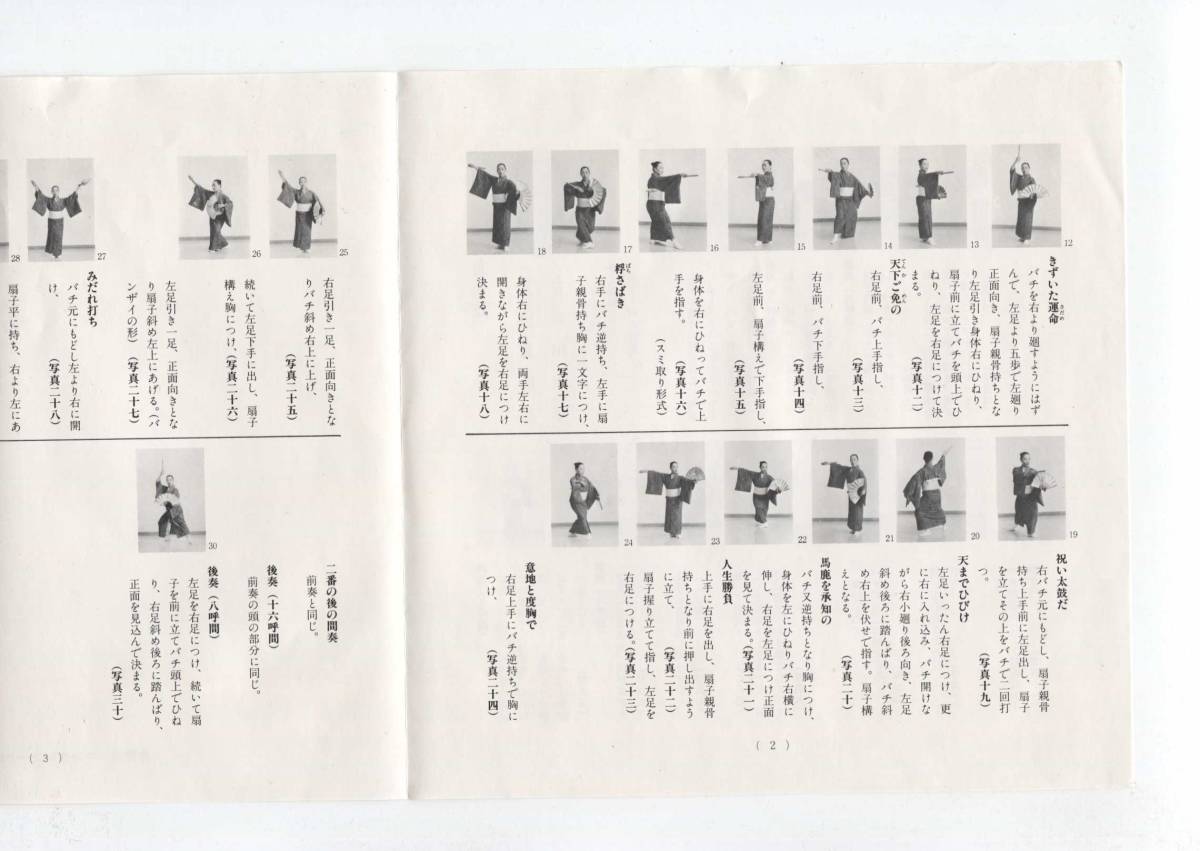 12
きずいた運命
さだめ
バチを右より廻すようにはず
んで、左足より五歩で左廻り
正面向き、扇子親骨持ちとな
り左足引き身体右にひねり、
扇子前に立てバチを頭上でひ
ねり、左足を右足につけて決
まる。
（写真十二）
13
天下ご免の
てんか めん
右足前、バチ上手指し、
（写真十三）
14
右足前、バチ下手指し、
（写真十四）
15
左足前、扇子構えで下手指し、
（写真十五）
16
身体を右にひねってバチで上
手を指す。
（写真十六）
（スミ取り形式）
17
桴さばき
ばち
右手にバチ逆持ち、左手に扇
子親骨持ち胸に一文字につけ、
（写真十七）
18
身体右にひねり、両手左右に
開きながら左足を右足につけ
決まる。
（写真十八）
19
祝い太鼓だ
右バチ元にもどし、扇子親骨
持ち上手前に左足出し、扇子
を立てその上をバチで二回打
つ。
（写真十九）
20
天までひびけ
左足いったん右足につけ、更
に右に入れ込み、バチ開けな
がら右小廻り後ろ向き、左足
斜め後ろに踏んばり、バチ斜
め右上を伏せで指す。扇子構
えとなる。
（写真二十）
21
馬鹿を承知の
バチ又逆持ちとなり胸につけ、
身体を左にひねりバチ右横に
伸し、右足を左足につけ正面
を見て決まる。
（写真二十一）
22
人生勝負
上手に右足を出し、扇子親骨
持ちとなり前に押し出すよう
に立て、
（写真二十二）
23
扇子握り立てて指し、左足を
右足につける。
（写真二十三）
24
意地と度胸で
右足上手にバチ逆持ちで胸に
つけ、
（写真二十四）
（2）
25
右足引き一足、正面向きとな
りバチ斜め右上に上げ、
（写真二十五）
26
続いて左足下手に出し、扇子
構え胸につけ、
（写真二十六）
左足引き一足、正面向きとな
り扇子斜め左上にあげる。（バ
ンザイの形）
（写真二十七）
27
みだれ打ち
バチ元にもどし左より右に開
け、
（写真二十八）
28
扇子平に持ち、右より左にあ
二番の後の間奏
前奏と同じ。
後奏（十六呼間）
前奏の頭の部分に同じ。
30
後奏（八呼間）
左足を右足につけ、続いて扇
子を前に立てバチ頭上でひね
り、右足斜め後ろに踏んばり、
正面を見込んで決まる。
（写真三十）
（3）